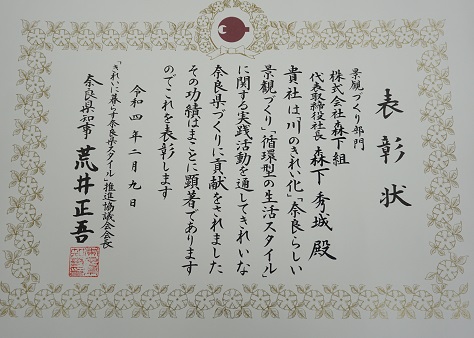 表彰状
景観づくり部門
株式会社森下組
代表取締役社長 森下秀城 殿
貴社は「川のきれい化」「奈良らしい
景観づくり」「循環型の生活スタイル」
に関する実践活動を通してきれいな
奈良県づくりに貢献をされました
その功績はまことに顕著であります
のでこれを表彰します
令和四年二月九日
「きれいに暮らす奈良県スタイル」推進協議会会長
奈良県知事 荒井正吾